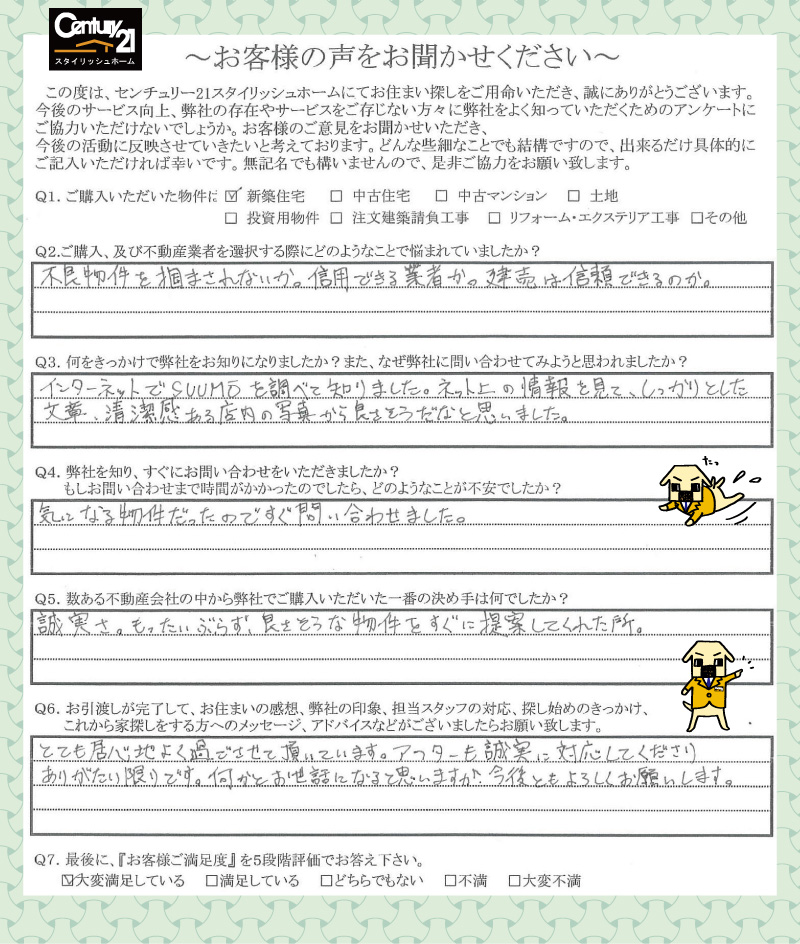 Century 21
スタイリッシュホーム
～お客様の声をお聞かせください～
この度は、センチュリー21スタイリッシュホームにてお住まい探しをご用命いただき、誠にありがとうございます。
今後のサービス向上、弊社の存在やサービスをご存じない方々に弊社をよく知っていただくためのアンケートに
ご協力いただけないでしょうか。お客様のご意見をお聞かせいただき、
今後の活動に反映させていきたいと考えております。どんな些細なことでも結構ですので、出来るだけ具体的に
ご記入いただければ幸いです。無記名でも構いませんので、是非ご協力をお願い致します。
Q1. ご購入いただいた物件に ☑ 新築住宅 □ 中古住宅 □ 中古マンション □ 土地
□ 投資用物件 □ 注文建築請負工事 □ リフォーム・エクステリア工事 □その他
Q2.ご購入、及び不動産業者を選択する際にどのようなことで悩まれていましたか？
不良物件を掴まされないか。信用できる業者か。建売は信頼できるのか。
Q3. 何をきっかけで弊社をお知りになりましたか？また、なぜ弊社に問い合わせてみようと思われましたか？
インターネットでSUUMOを調べて知りました。ネット上の情報を見て、しっかりとした
文章、清潔感ある店内の写真から良さそうだなと思いました。
Q4. 弊社を知り、すぐにお問い合わせをいただきましたか？
もしお問い合わせまで時間がかかったのでしたら、どのようなことが不安でしたか？
たっ
気になる物件だったのですぐ問い合わせました。
Q5. 数ある不動産会社の中から弊社でご購入いただいた一番の決め手は何でしたか？
誠実さ。もったいぶらず、良さそうな物件をすぐに提案してくれた所。
Q6. お引渡しが完了して、お住まいの感想、弊社の印象、担当スタッフの対応、探し始めのきっかけ、
これから家探しをする方へのメッセージ、アドバイスなどがございましたらお願い致します。
とても居心地よく過ごさせて頂いています。アフターも誠実に対応してくださり
ありがたい限りです。何かとお世話になると思いますが、今後ともよろしくお願いします。
Q7. 最後に、『お客様ご満足度』を5段階評価でお答え下さい。
☑大変満足している □満足している □どちらでもない □不満 □大変不満